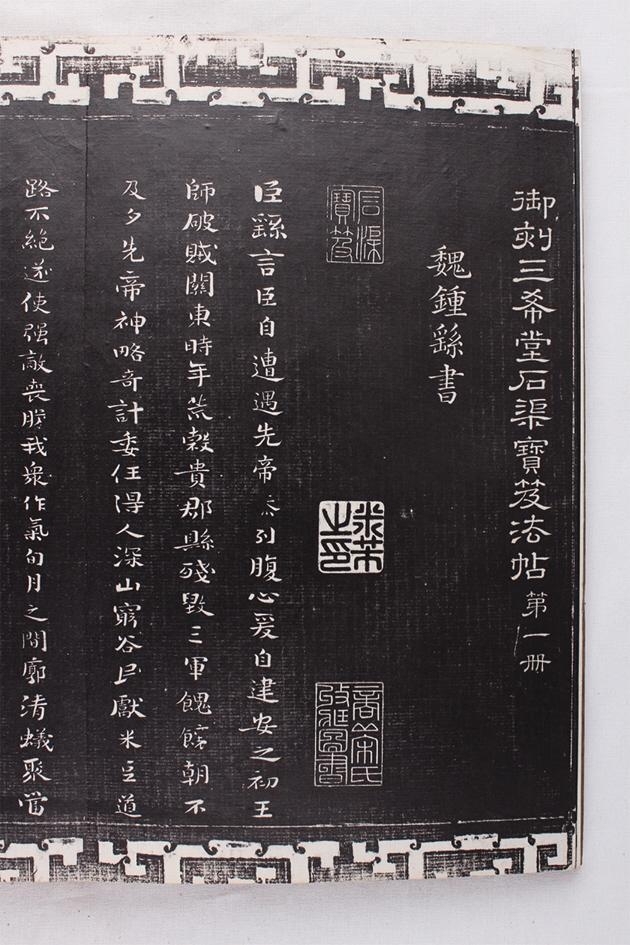 御刻三希堂石渠寶笈法帖第一册
魏鍾繇書
石渠寶笈
米芾之印
臣繇言臣自遭遇先帝忝列腹心爰自建安之初王
師破賊關東時年荒穀貴郡縣殘毀三軍餽饟朝不
及夕先帝神略奇計委任得人深山窮谷民獻米豆道
路不絕遂使强敵喪膽我衆作氣旬月之間廓清蟻聚當